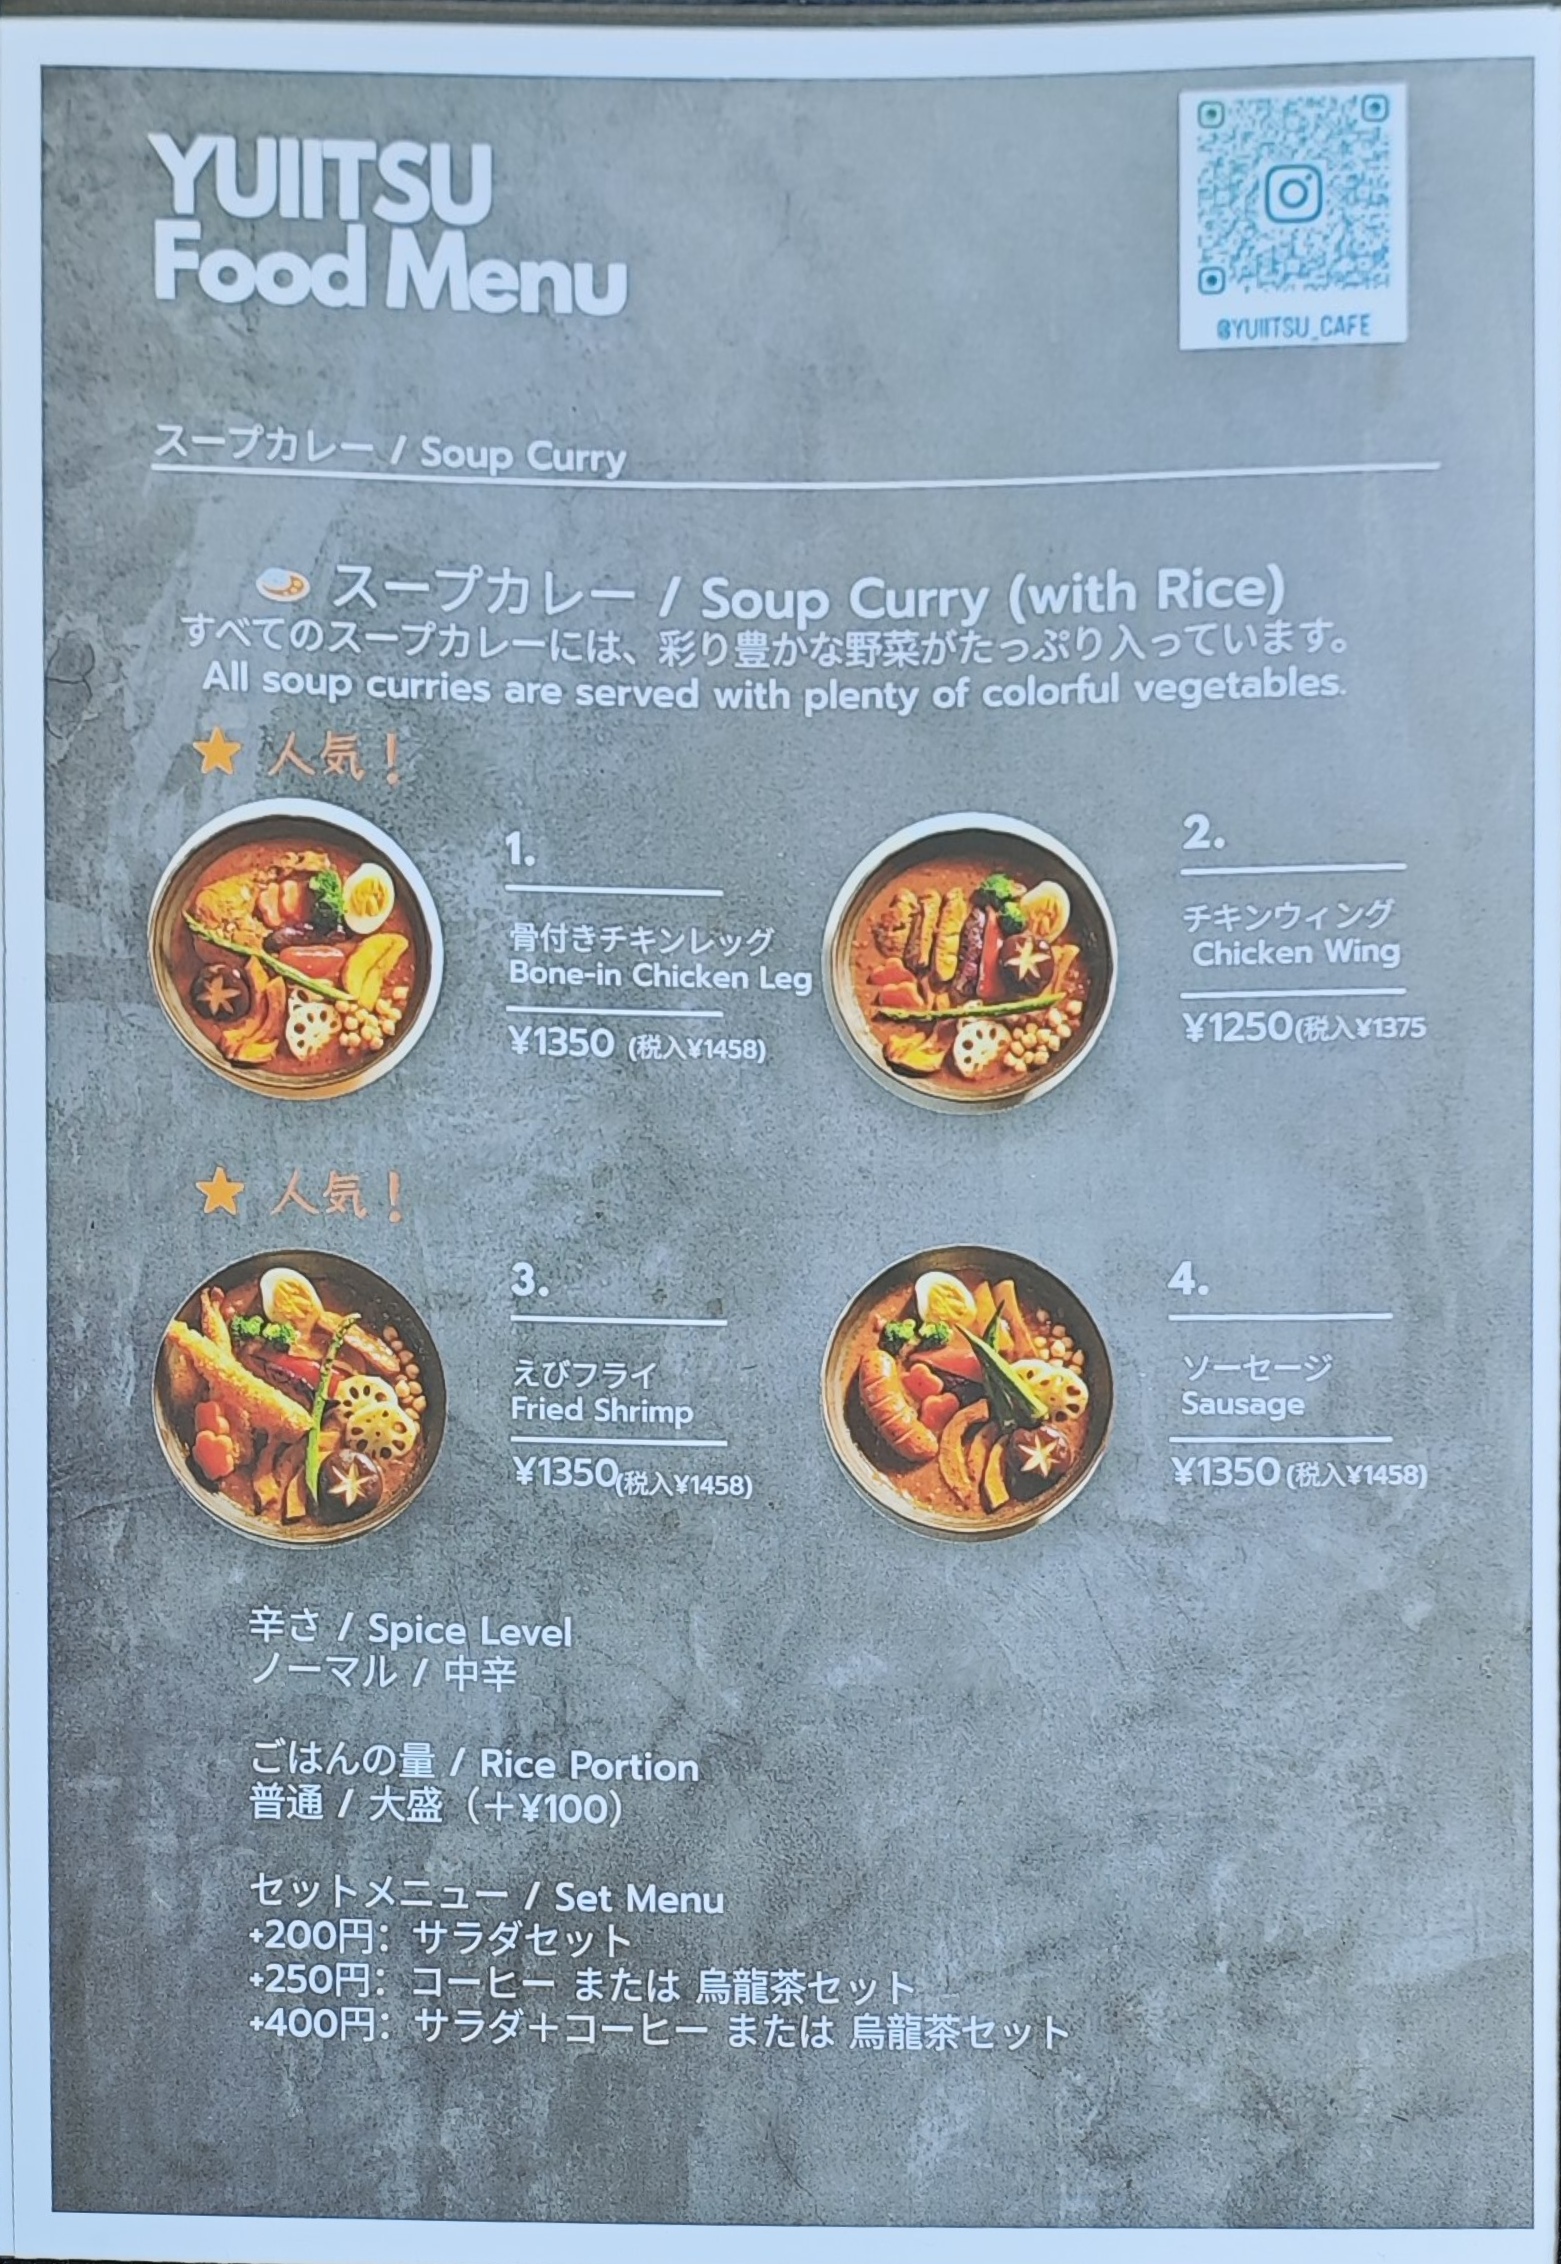 YUIITSU
Food Menu
@YUIITSU_CAFE
スープカレー / Soup Curry
スープカレー / Soup Curry (with Rice)
すべてのスープカレーには、彩り豊かな野菜がたっぷり入っています。
All soup curries are served with plenty of colorful vegetables.
★ 人気！
1.
骨付きチキンレッグ
Bone-in Chicken Leg
¥1350 (税入¥1458)
2.
チキンウィング
Chicken Wing
¥1250(税入¥1375
★ 人気！
3.
えびフライ
Fried Shrimp
¥1350(税入¥1458)
4.
ソーセージ
Sausage
¥1350 (税入¥1458)
辛さ / Spice Level
ノーマル / 中辛
ごはんの量 / Rice Portion
普通 / 大盛（＋¥100）
セットメニュー / Set Menu
+200円：サラダセット
+250円：コーヒー または 烏龍茶セット
+400円：サラダ＋コーヒー または 烏龍茶セット